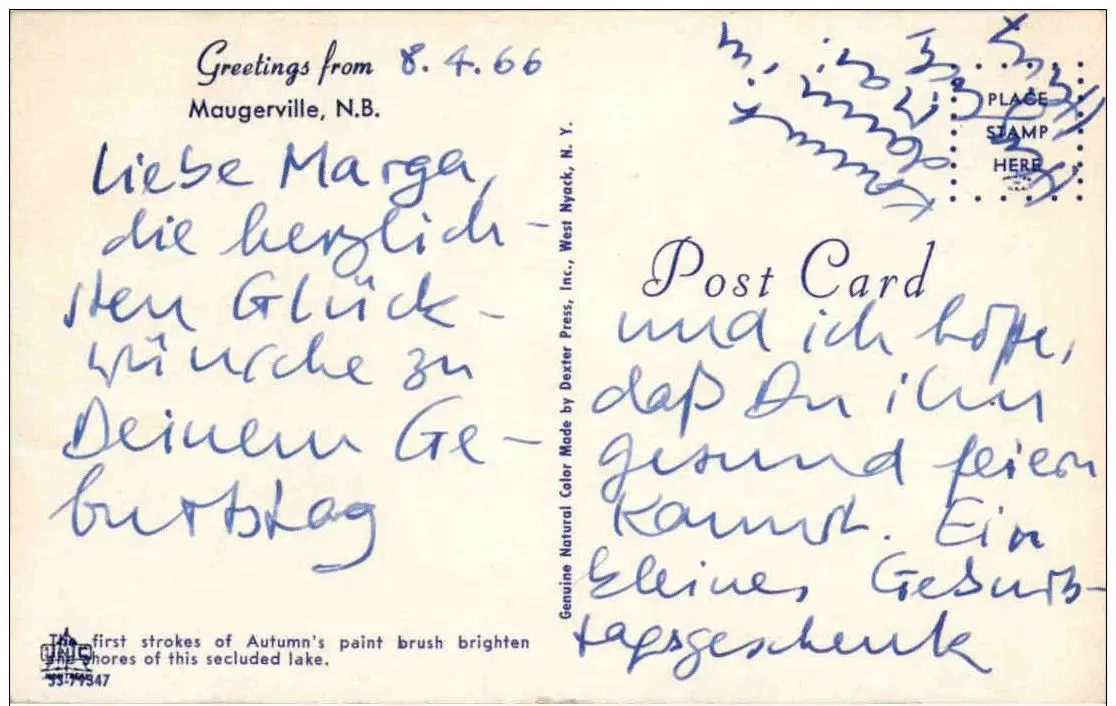 Greetings from 8.4.66
Maugerville, N.B.
Liebe Marga,
die herzlich-
sten Glück-
wünsche zu
Deinem Ge-
burtstag
The first strokes of Autumn's paint brush brighten
the shores of this secluded lake.
53-79347
Genuine Natural Color Made by Dexter Press, Inc., West Nyack, N. Y.
PLACE
STAMP
HERE
Post Card
und ich hoffe,
daß Du ihn
gesund feiern
kannst. Ein
kleines Geburts-
tagsgeschenk